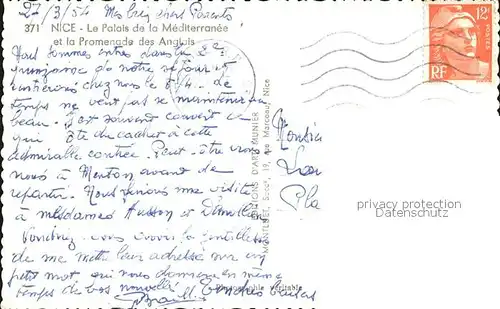 27/3/54 Mes bien chers Parents
371 NICE - Le Palais de la Méditerranée
et la Promenade des Anglais
Nous sommes entrés dans la 2e
quinzaine de notre séjour et
rentrerons chez nous le 8/4. Le
temps ne veut pas se maintenir au
beau. C'est souvent couvert ce
qui ôte du cachet à cette
admirable contrée. Peut-être irons
nous à Menton avant de
repartir. Nous ferions une visite
à mesdames Husson et
Voudriez-vous avoir la gentillesse
de me mettre leur adresse sur un
petit mot qui nous donnera en même
temps de vos nouvelles Tendres baisers
EDITIONS D'ART MUNIER
MONTLUET, Succr, 19, Rue Marceau, Nice
Photographie véritable
12F
POSTES
RF
Monsieur
Pla
privacy protection
Datenschutz